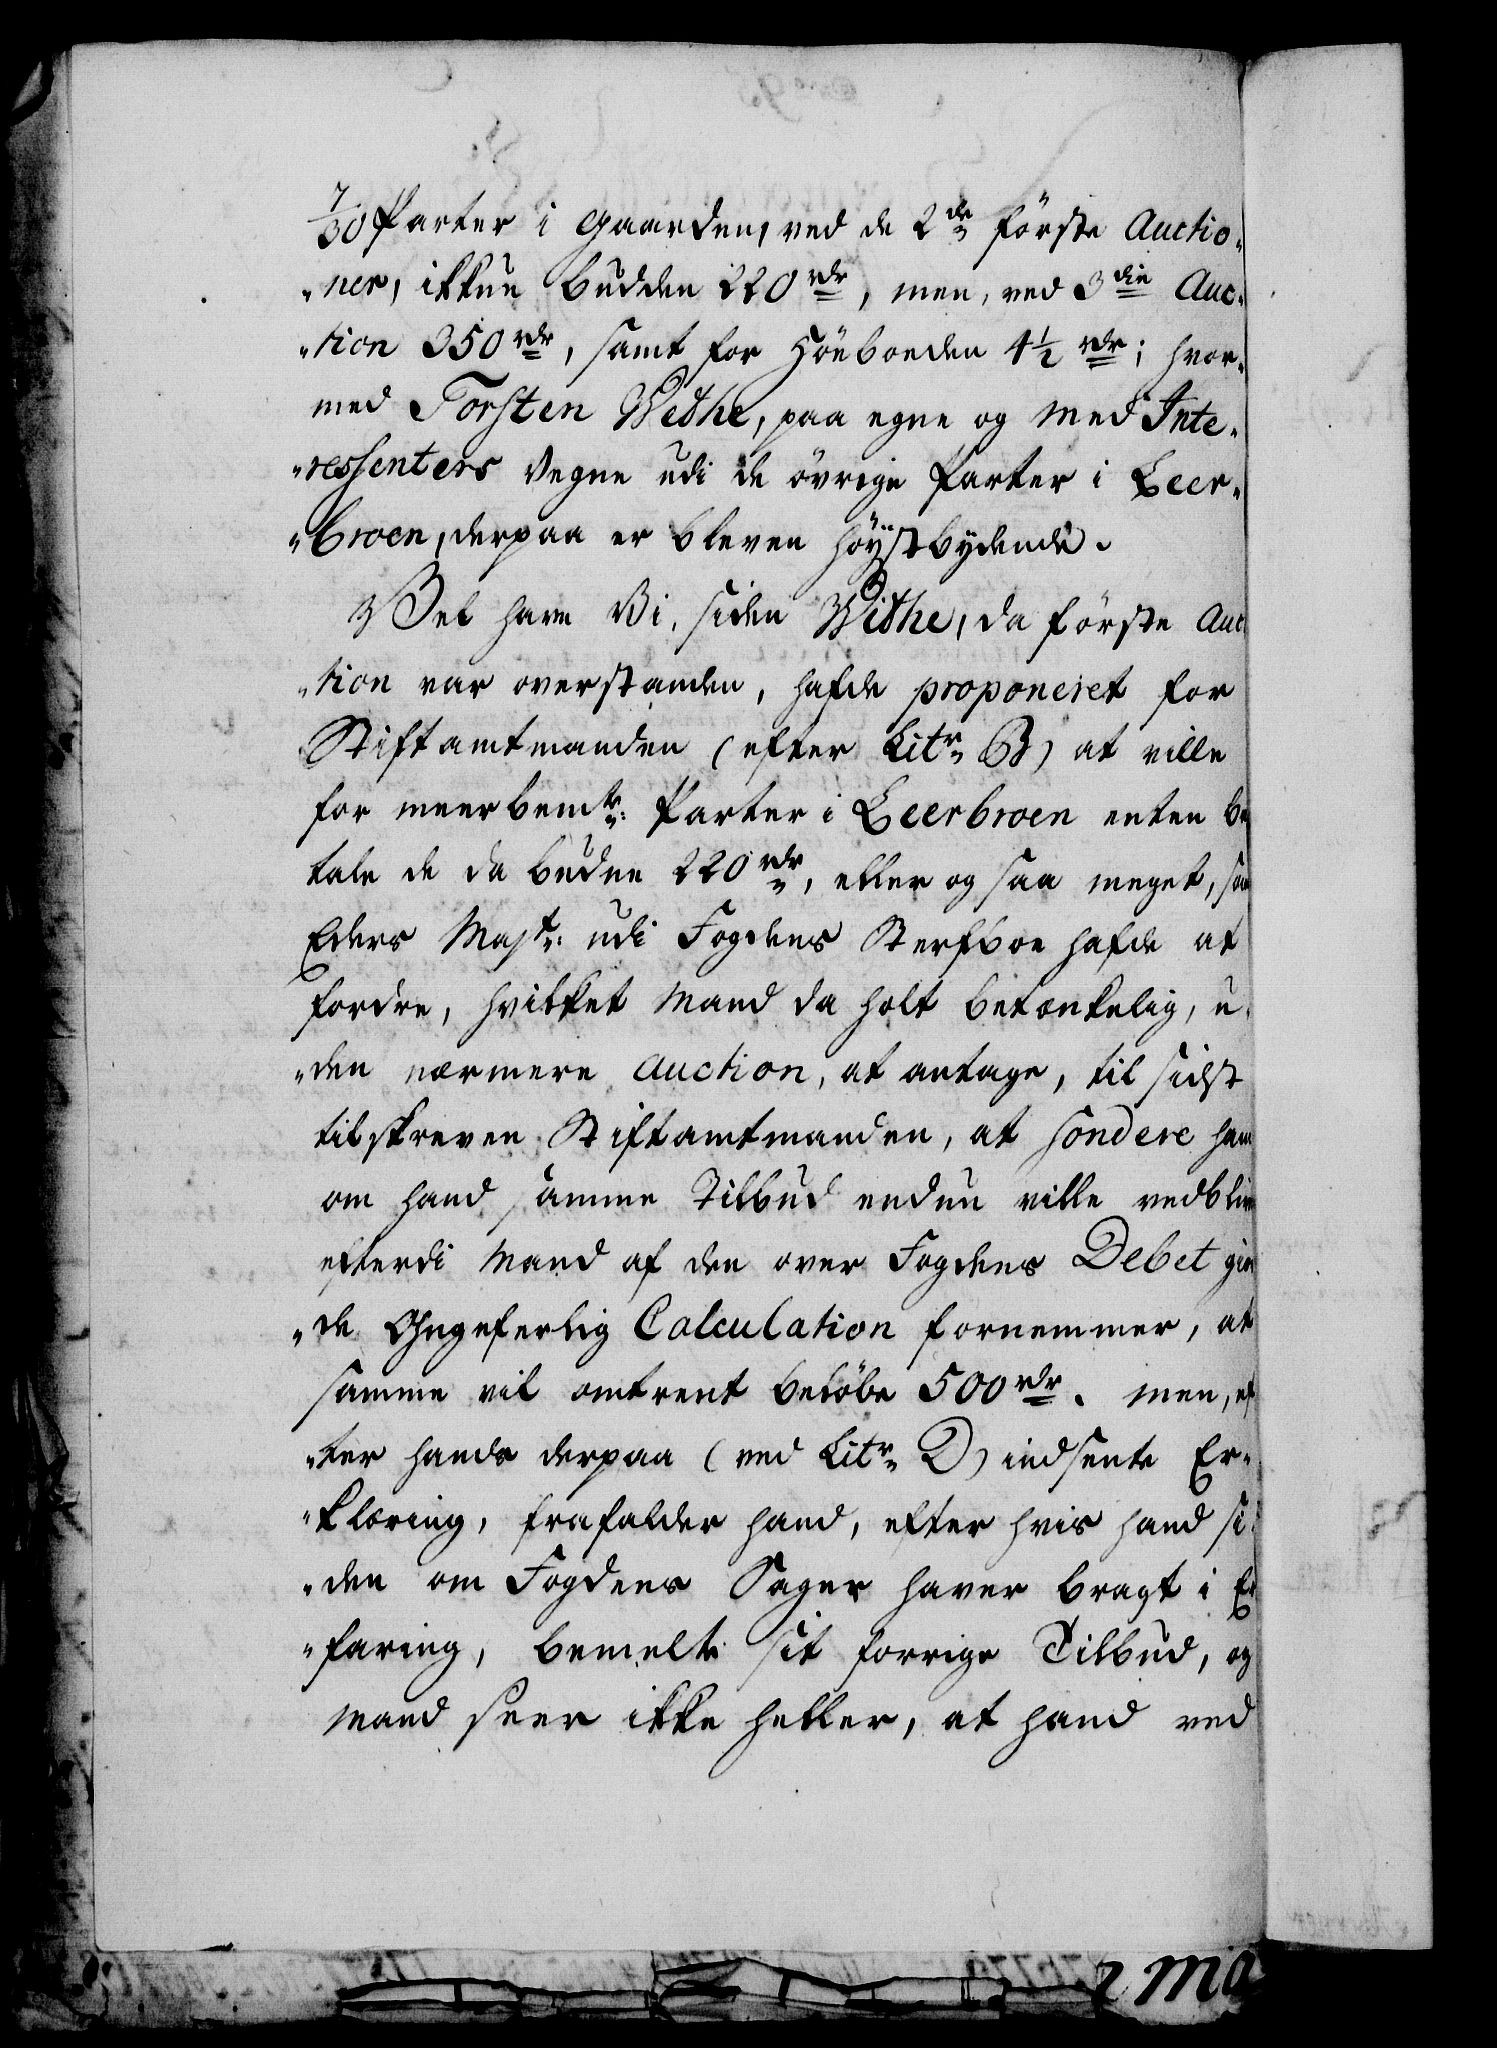 7/30 Parter i Gaarden, ved de 2de første Auctio-
-ner, ikkun budden 220 rdr, men, ved 3die Auc-
-tion 350 rdr, samt for Höeboeden 4½ rdr; hvor-
med Torsten Wethe, paa egne og Med Inte-
-ressenters Vegne udi de övrige Parter i Leer-
-broen, derpaa er bleven höystbydende.
Vel have Vi, siden Withe, da første Auc
-tion var overstanden, hafde proponeret for
Stiftamtmanden (efter Litr. B) at ville
for meerbemte: Parter i Leerbroen enten be
tale de da budne 220 rdr, eller og saa meget, som
Eders Majt: udi Fogdens Sterfboe hafde at
fordre, hvilket Mand da holt betænkelig, u-
-den nærmere Auction, at antage, til sidst
tilskreven Stiftamtmanden, at sondere ham
om hand samme Tilbud endnu ville vedblive
efterdi Mand af den over Fogdens Debet giv
-de Ohngeferlig Calculation fornemmer, at
samme vil omtrent beløbe 500 rdr. men, ef
-ter hands derpaa (ved Litr. D) indsente Er-
-klæring, frafalder hand, efter hvis hand si-
-den om Fogdens Sager haver bragt i Er
-faring, bemelte sit forrige Tilbud, og
Mand seer ikke heller, at hand ved